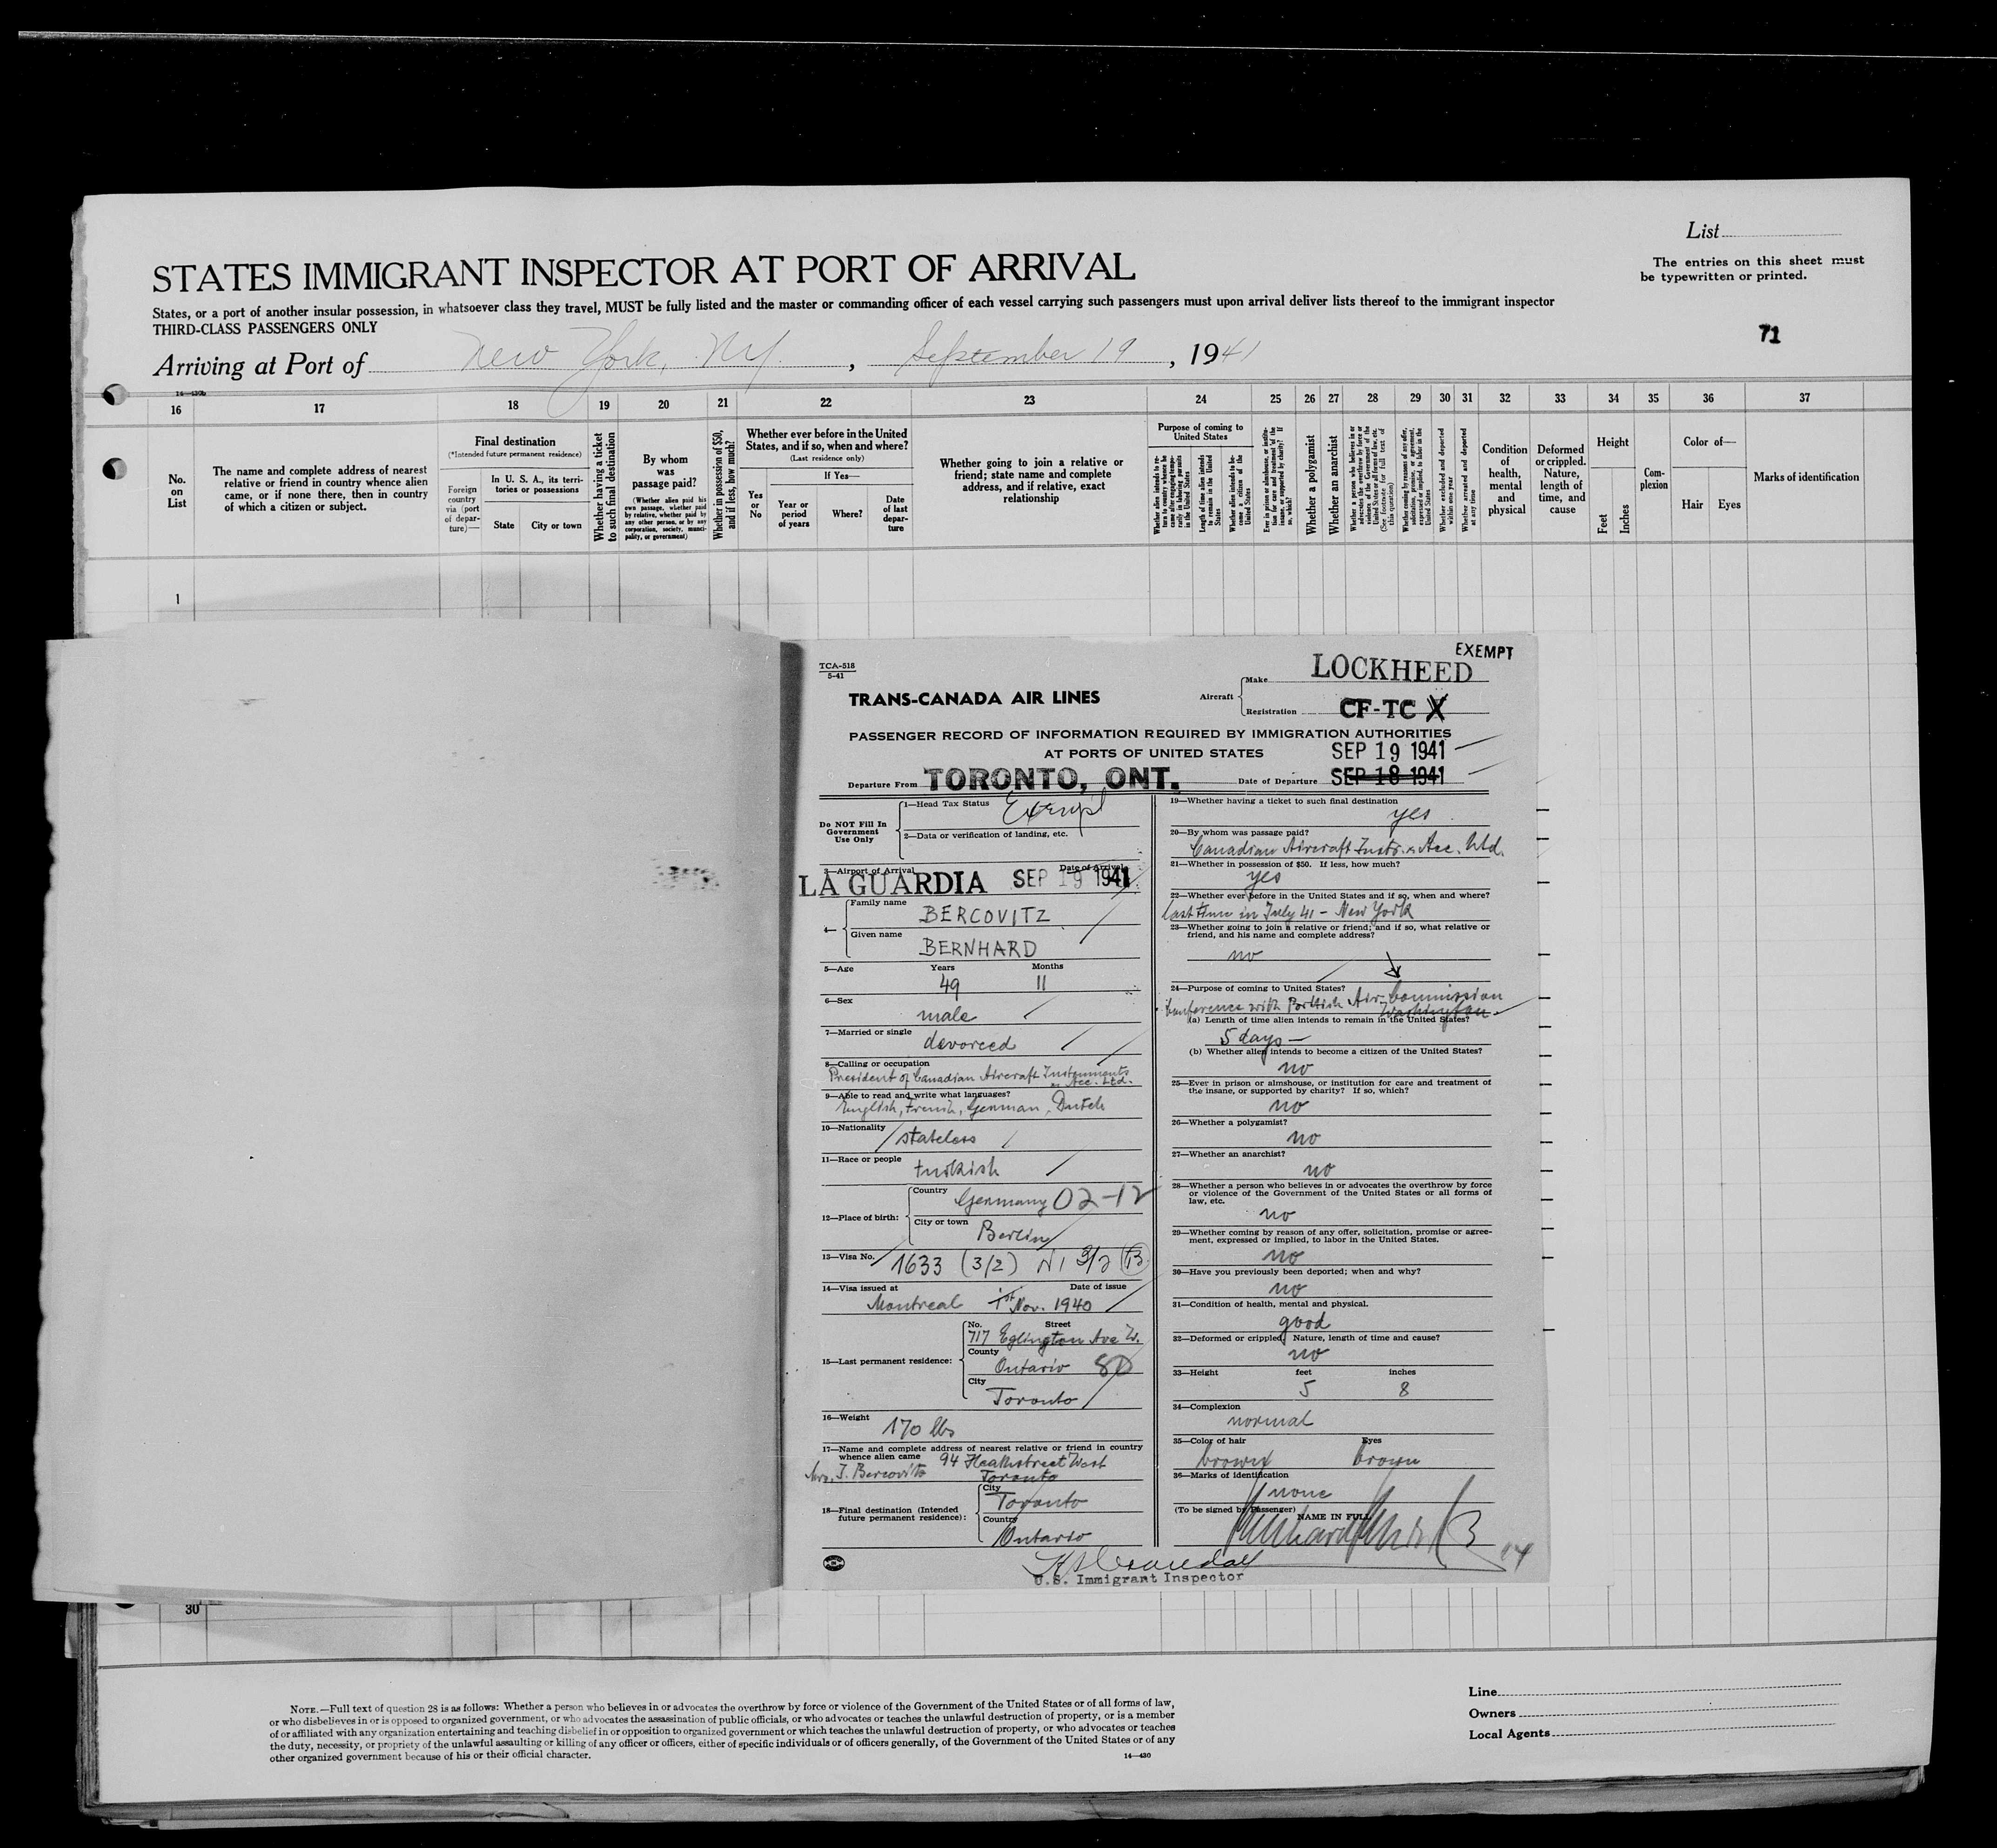 List
The entries on this sheet must
be typewritten or printed.
STATES IMMIGRANT INSPECTOR AT PORT OF ARRIVAL
States, or a port of another insular possession, in whatsoever class they travel, MUST be fully listed and the master or commanding officer of each vessel carrying such passengers must upon arrival deliver lists thereof to the immigrant inspector
THIRD-CLASS PASSENGERS ONLY
71
Arriving at Port of New York, NY. , September 19 , 1941
16 17 18 19 20 21 22 23 24 25 26 27 28 29 30 31 32 33 34 35 36 37
No.
on
List
The name and complete address of nearest
relative or friend in country whence alien
came, or if none there, then in country
of which a citizen or subject.
Final destination
(*Intended future permanent residence)
Foreign
country
via (port
of depar-
ture)—
In U. S. A., its terri-
tories or possessions
State
City or town
Whether having a ticket
to such final destination
By whom
was
passage paid?
(Whether alien paid his
own passage, whether paid
by relative, whether paid by
any other person, or by any
corporation, society, munici-
pality, or government)
Whether in possession of $50,
and if less, how much?
Whether ever before in the United
States, and if so, when and where?
(Last residence only)
Yes
or
No
If Yes—
Year or
period
of years
Where?
Date
of last
depar-
ture
Whether going to join a relative or
friend; state name and complete
address, and if relative, exact
relationship
Purpose of coming to
United States
Whether alien intends to re-
turn to country whence he
came after engaging tempo-
rarily in laboring pursuits
in the United States
Length of time alien intends
to remain in the United
States
Whether alien intends to be-
come a citizen of the
United States
Ever in prison or almshouse, or institu-
tion for care and treatment of the
insane, or supported by charity? If
so, which?
Whether a polygamist
Whether an anarchist
Whether a person who believes in or
advocates the overthrow by force or
violence of the Government of the
United States or all forms of law, etc.
(See footnote for full text of
this question)
Whether coming by reason of any offer,
solicitation, promise, or agreement,
expressed or implied, to labor in the
United States
Whether excluded and deported
within one year
Whether arrested and deported
at any time
Condition
of
health,
mental
and
physical
Deformed
or crippled.
Nature,
length of
time, and
cause
Height
Feet
Inches
Com-
plexion
Color of—
Hair
Eyes
Marks of identification
1
TCA-518
5-41
EXEMPT
TRANS-CANADA AIR LINES
Aircraft
Make LOCKHEED
Registration CF-TC X
PASSENGER RECORD OF INFORMATION REQUIRED BY IMMIGRATION AUTHORITIES
AT PORTS OF UNITED STATES
SEP 19 1941
Departure From TORONTO, ONT. Date of Departure SEP 18 1941
Do NOT Fill In
Government
Use Only
1—Head Tax Status Exempt
2—Data or verification of landing, etc.
3—Airport of Arrival Date of Arrival
LA GUARDIA SEP 19 1941
4—
Family name BERCOVITZ
Given name BERNHARD
5—Age Years 49 Months 11
6—Sex male
7—Married or single devorced
8—Calling or occupation
President of Canadian Aircraft Instruments
& Acc. Ltd.
9—Able to read and write what languages?
English, French, German, Dutch
10—Nationality stateless
11—Race or people turkish
12—Place of birth:
Country Germany 02-12
City or town Berlin
13—Visa No. 1633 (3/2) NI 3/2 (B)
14—Visa issued at Date of issue
Montreal 1st Nov. 1940
15—Last permanent residence:
No. Street
717 Eglington Ave W.
County
Ontario 80
City
Toronto
16—Weight 170 lbs
17—Name and complete address of nearest relative or friend in country
whence alien came 94 Heathstreet West
Mrs. J. Bercovitz Toronto
18—Final destination (Intended
future permanent residence):
City
Toronto
Country
Ontario
19—Whether having a ticket to such final destination
yes
20—By whom was passage paid?
Canadian Aircraft Instr. & Acc. Ltd.
21—Whether in possession of $50. If less, how much?
yes
22—Whether ever before in the United States and if so, when and where?
last time in July 41 - New York
23—Whether going to join a relative or friend; and if so, what relative or
friend, and his name and complete address?
no
24—Purpose of coming to United States?
Conference with British Air-Commission
Washington
(a) Length of time alien intends to remain in the United States?
5 days
(b) Whether alien intends to become a citizen of the United States?
no
25—Ever in prison or almshouse, or institution for care and treatment of
the insane, or supported by charity? If so, which?
no
26—Whether a polygamist?
no
27—Whether an anarchist?
no
28—Whether a person who believes in or advocates the overthrow by force
or violence of the Government of the United States or all forms of
law, etc.
no
29—Whether coming by reason of any offer, solicitation, promise or agree-
ment, expressed or implied, to labor in the United States.
no
30—Have you previously been deported; when and why?
no
31—Condition of health, mental and physical.
good
32—Deformed or crippled. Nature, length of time and cause?
no
33—Height feet inches
5 8
34—Complexion
normal
35—Color of hair Eyes
brown brown
36—Marks of identification
none
(To be signed by Passenger)
NAME IN FULL
U.S. Immigrant Inspector
30
NOTE.—Full text of question 28 is as follows: Whether a person who believes in or advocates the overthrow by force or violence of the Government of the United States or of all forms of law,
or who disbelieves in or is opposed to organized government, or who advocates the assassination of public officials, or who advocates or teaches the unlawful destruction of property, or is a member
of or affiliated with any organization entertaining and teaching disbelief in or opposition to organized government or which teaches the unlawful destruction of property, or who advocates or teaches
the duty, necessity, or propriety of the unlawful assaulting or killing of any officer or officers, either of specific individuals or of officers generally, of the Government of the United States or of any
other organized government because of his or their official character.
14—430
Line
Owners
Local Agents